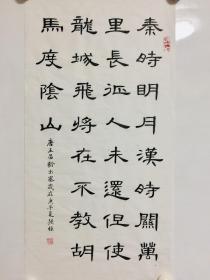 秦時明月漢時關萬
里長征人未還但使
龍城飛將在不教胡
馬度陰山
唐王昌齡出塞